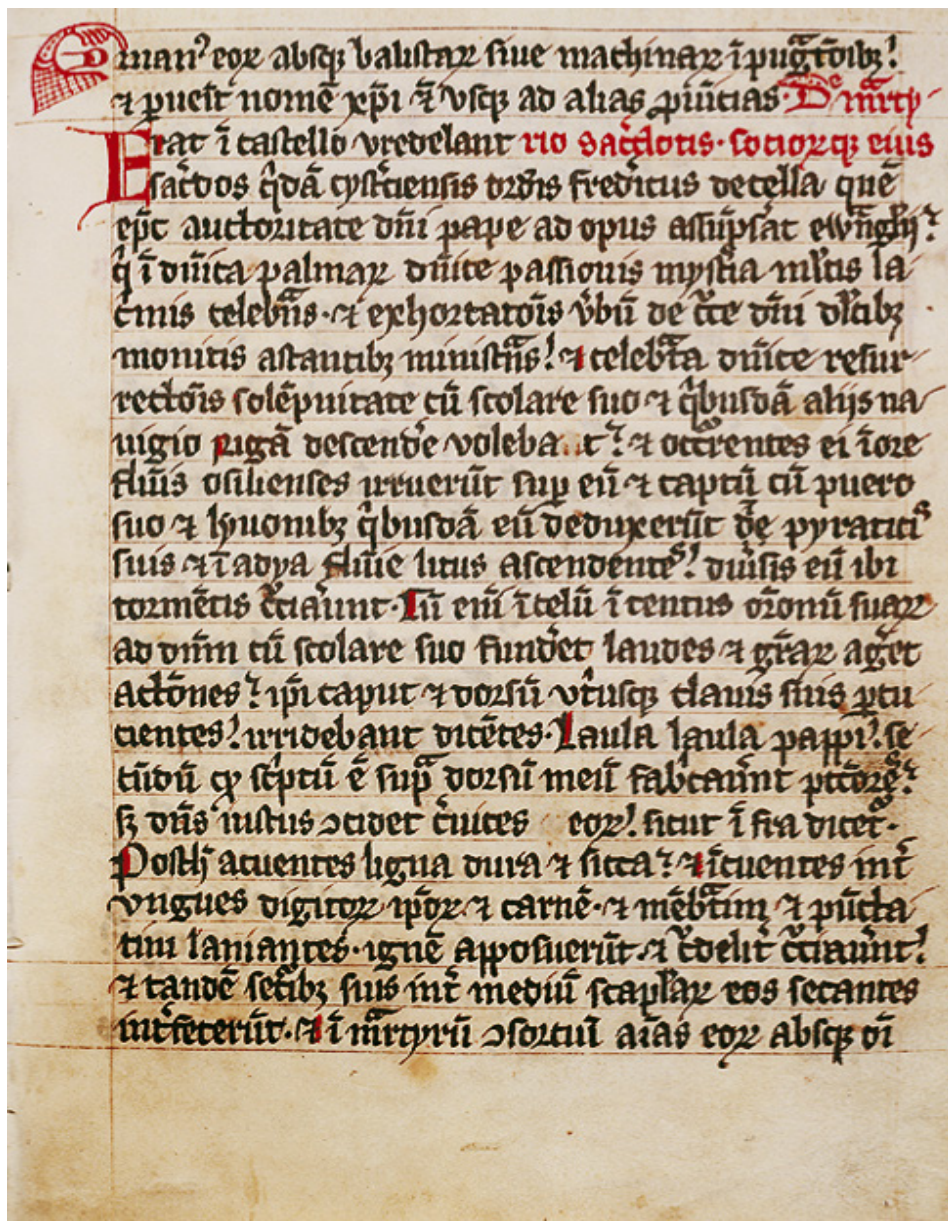 manꝰ eoꝝ absqꝫ balistaꝝ siue machinaꝝ ī pugᷓtōibꝫ!
⁊ ꝑueīt nomē xp̄i ⁊ vsqꝫ ad alias ꝓuīcias· De mᷓrty-
Erat ī castello vredelant rio sac̄dotis· socioꝝqꝫ eius
sac̄dos q̄dā cyst̄ciensis ordīs fred̄icus de cella quē
ep̄c auctoritate dn̄i pape ad opus assūpsat ewāgl̄ij?
q̄ ī dn̄ica palmaꝝ dn̄ice passionis myst̄ia ml̄tis la-
c̄mis celebrᷓns· ⁊ exhortatōis v̄bū de c̄ce dn̄i dl̄cibꝫ
monitis astantibꝫ ministrᷓns! ⁊ celebᷓta dn̄ice resur-
rectōis solēpnitate cū scolare suo ⁊ q̄busdā alijs na-
uigio rigā descende voleba..t? ⁊ occ̄rentes ei ī ore
flūīs osilienses irruerūt suꝑ eū ⁊ captū cū puero
suo ⁊ lyuonibꝫ q̄busdā eū deduxerūt pyraticis
suis ⁊ ī adya flūie litus ascendentes! diūsis eū ibi
tormētis c̄ciauunt· Cū em̄ ī celū ī tentus orōnū suaꝝ
ad dn̄m cū scolare suo fundet laudes ⁊ grᷓaꝝ aḡet
actōnes? ip̄i caput ⁊ dorsū vt̄usqꝫ clauis suis ꝑcu-
cientes! irridebant dicētes· Laula laula pappi! se-
cūdū qꝫ sc̄ptū ē suprᷓ dorsū meū fab̄cauūnt pcc̄ores?
sꝫ dn̄s iustus ↄcidet c̄uices eoꝝ! sicut ī fra dicet̄·
Posth̄ acuentes ligna dura ⁊ sicca? ⁊ īcuentes int̄
vngues digitoꝝ ip̄oꝝ ⁊ carnē· ⁊ mēbᷓtim ⁊ pūcta-
tim laniantes· ignē apposuerūt· ⁊ c̄delit̄ c̄ciauūnt!
⁊ tandē sec̄ibꝫ suis int̄ mediū scapl̄aꝝ eos secantes
int̄fecerūt· ⁊ ī mᷓrtyrū ↄsortiū aīas eoꝝ absqꝫ oī